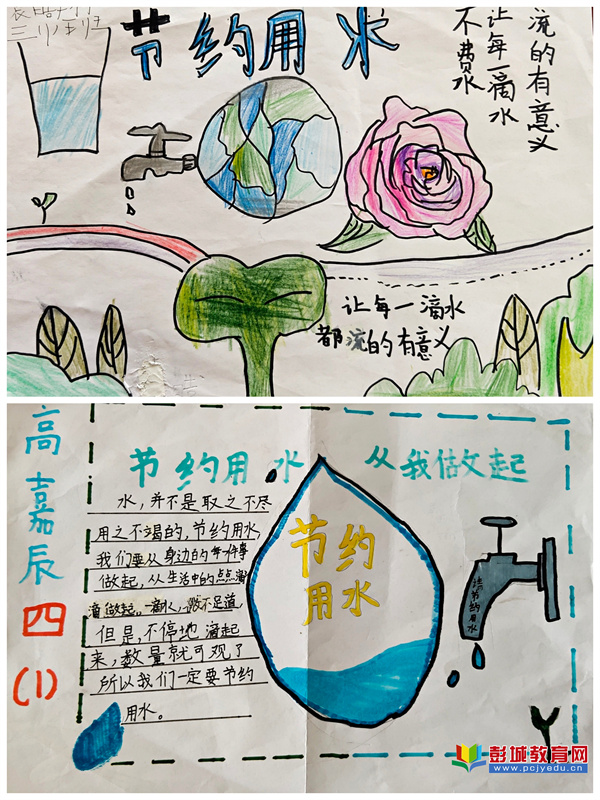 节约用水
流的有意义
让每一滴水
不费水
让每一滴水
都流的有意义
高嘉辰
四
(1)
节约用水 从我做起
水，并不是取之不尽
用之不竭的，节约用水，
我们要从身边的每件事
做起，从生活中的点点滴
滴做起，一滴水，微不足道，
但是，不停地滴起
来，数量就可观了
所以我们一定要节约
用水。
节约
用水
请节约用水
彭城教育网
www.pcjyedu.cn